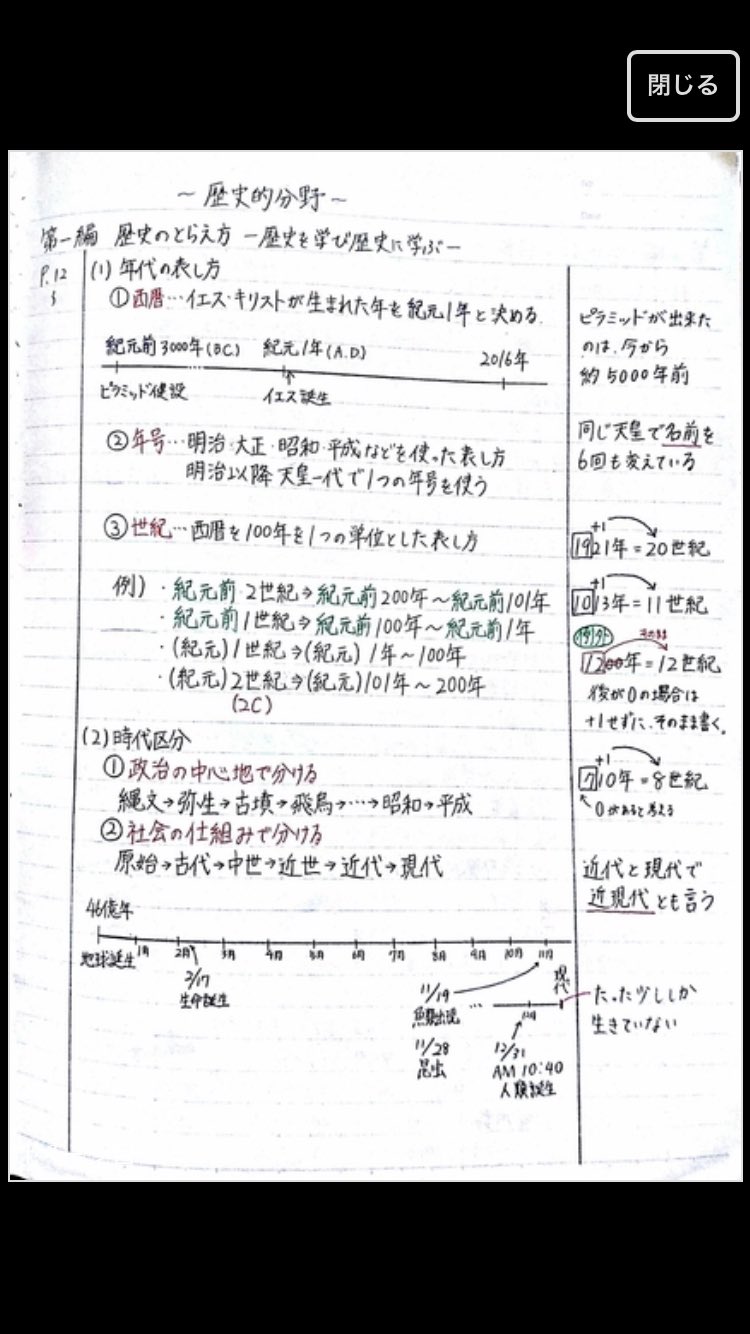 閉じる
～歴史的分野～
第一編 歴史のとらえ方 ー歴史を学び歴史に学ぶー
P.12
3
(1) 年代の表し方
①西暦…イエス・キリストが生まれた年を紀元1年と決める.
紀元前3000年(B.C.) 紀元1年(A.D) 2016年
ピラミッド建設 イエス誕生
②年号…明治・大正・昭和・平成などを使った表し方
明治以降 天皇一代で1つの年号を使う
③世紀…西暦を100年を1つの単位とした表し方
例)・紀元前2世紀⇒紀元前200年～紀元前101年
・紀元前1世紀⇒紀元前100年～紀元前1年
・(紀元)1世紀⇒(紀元)1年～100年
・(紀元)2世紀⇒(紀元)101年～200年
(2C)
(2)時代区分
①政治の中心地で分ける
縄文→弥生→古墳→飛鳥→…→昭和→平成
②社会の仕組みで分ける
原始→古代→中世→近世→近代→現代
46億年
地球誕生 1月 2月 3月 4月 5月 6月 7月 8月 9月 10月 11月
2/17
生命誕生
11/19
魚類出現
11/28
昆虫
… 12月 現代
12/31
AM 10:40
人類誕生
ピラミッドが出来た
のは、今から
約5000年前
同じ天皇で名前を
6回も変えている
+1
1921年=20世紀
+1
1013年=11世紀
例外 そのまま
1200年=12世紀
後が0の場合は
+1せずに、そのまま書く。
+1
710年=8世紀
0があると考える
近代と現代で
近現代とも言う
たった少ししか
生きていない